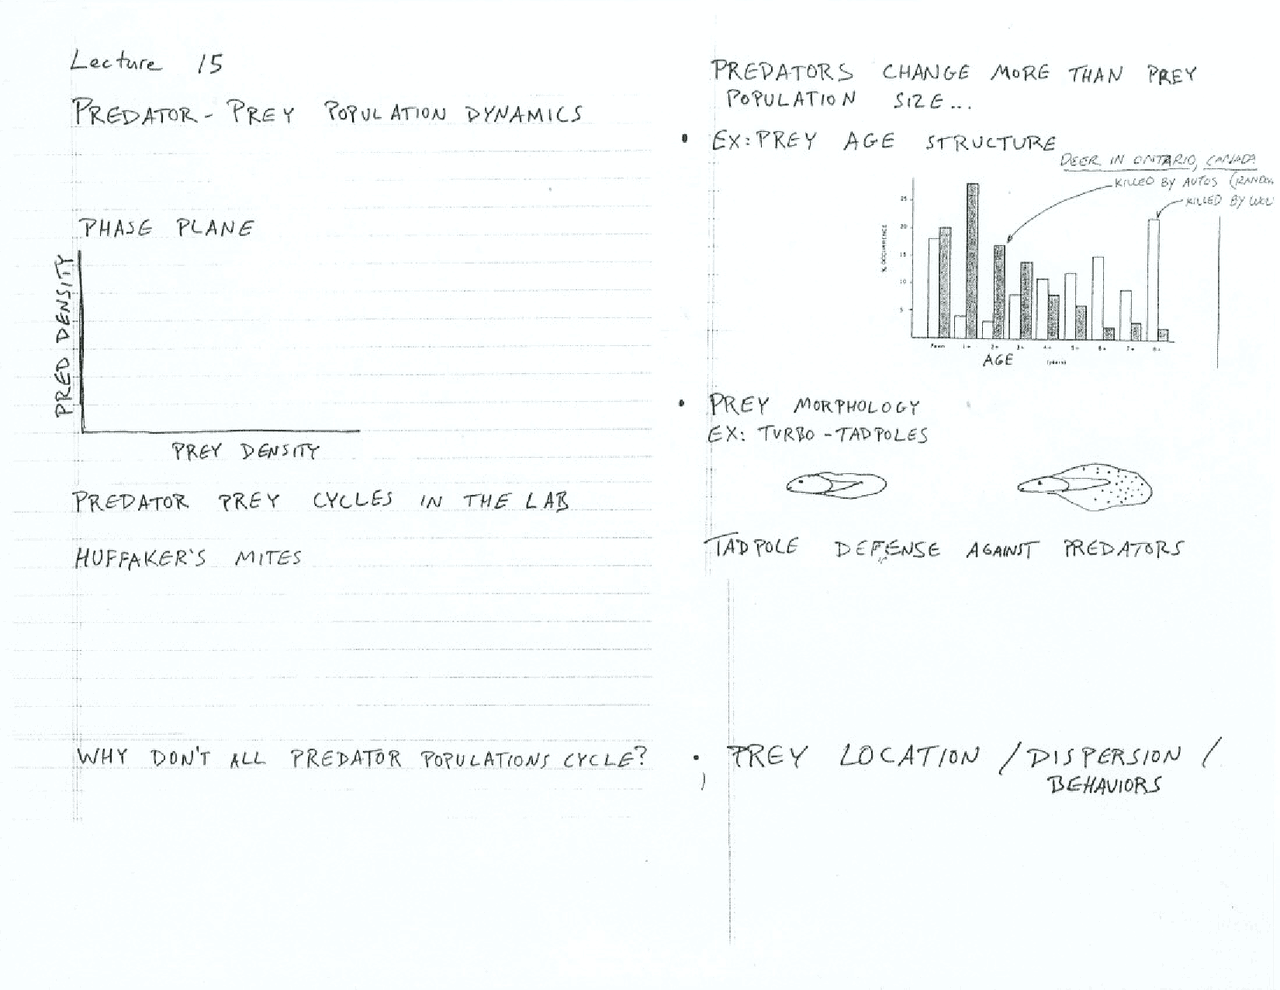 Lecture 15
PREDATOR - PREY POPULATION DYNAMICS
PHASE PLANE
PRED DENSITY
PREY DENSITY
PREDATOR PREY CYCLES IN THE LAB
HUFFAKER'S MITES
WHY DON'T ALL PREDATOR POPULATIONS CYCLE?
PREDATORS CHANGE MORE THAN PREY
POPULATION SIZE...
• EX: PREY AGE STRUCTURE
DEER IN ONTARIO, CANADA
KILLED BY AUTOS
KILLED BY
% OCCURRENCE
25
20
15
10
5
Fawn 1+ 2+ 3+ 4+ 5+ 6+ 7+ 8+
AGE (years)
• PREY MORPHOLOGY
EX: TURBO-TADPOLES
TADPOLE DEFENSE AGAINST PREDATORS
• PREY LOCATION / DISPERSION /
BEHAVIORS